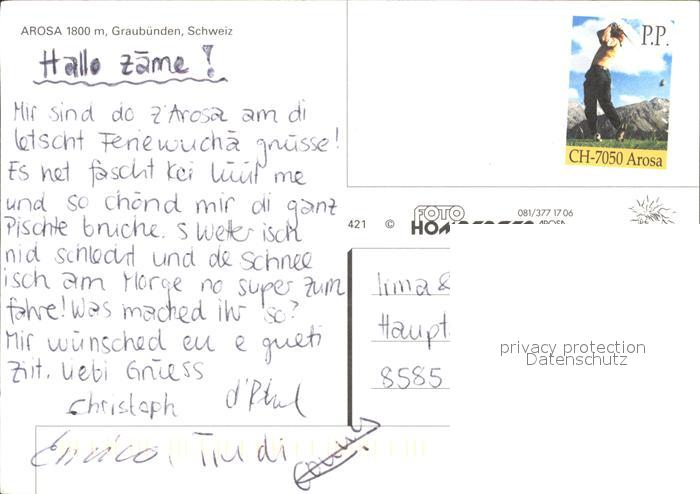 AROSA 1800 m, Graubünden, Schweiz
Hallo zäme!
Mir sind do z'Arosa am di
letscht Feriewuchä gnüsse!
Es het fascht kei Lüüt me
und so chönd mir di ganz
Pischte bruche. S Wetter isch
nid schlecht und de Schnee
isch am Morge no super zum
fahre! Was mached ihr so?
Mir wünsched eu e gueti
Ziit. Liebi Grüess
Christoph
Enrico, Trudi
P.P.
CH-7050 Arosa
421 © FOTO 081/377 17 06
AROSA
Haupt
8585
privacy protection
Datenschutz